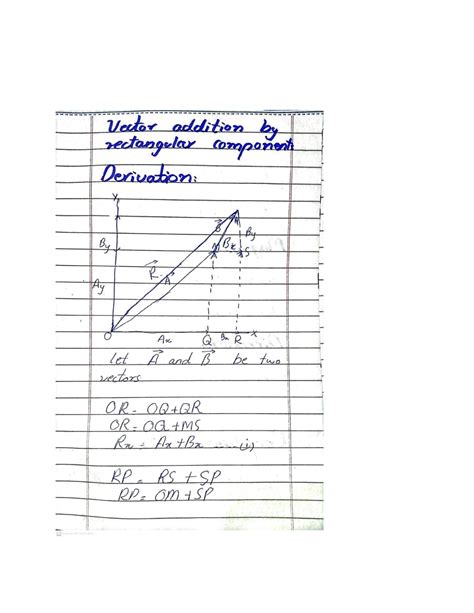 Vector addition by
rectangular components
Derivation:
Y
B
By
By
Bx
M
S
R
A
Ay
O
Ax
Q
Bx
R
X
let A and B be two
vectors
OR = OQ+QR
OR = OQ+MS
Rx = Ax+Bx ....(i)
RP = RS + SP
RP = QM+SP